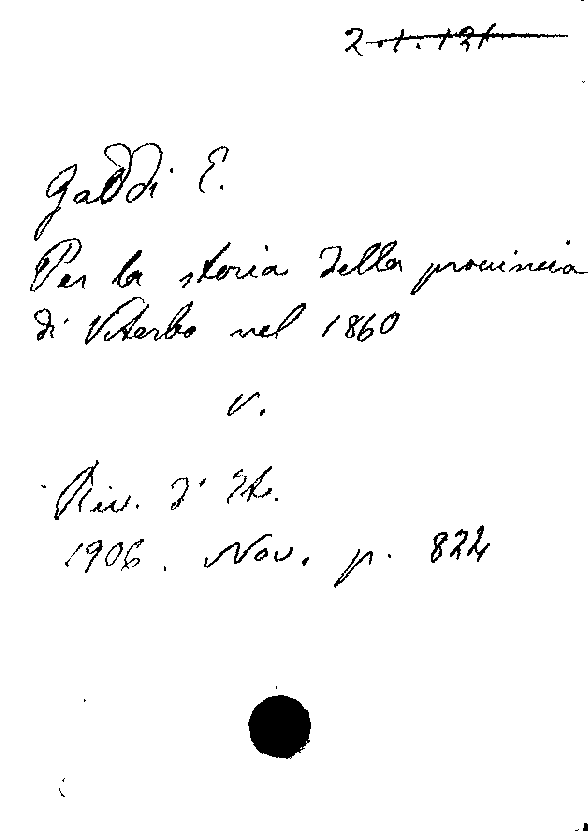 2.1.121
Gaddi E.
Per la storia della provincia
di Viterbo nel 1860
v.
Riv. d' It.
1906. Nov. p. 824